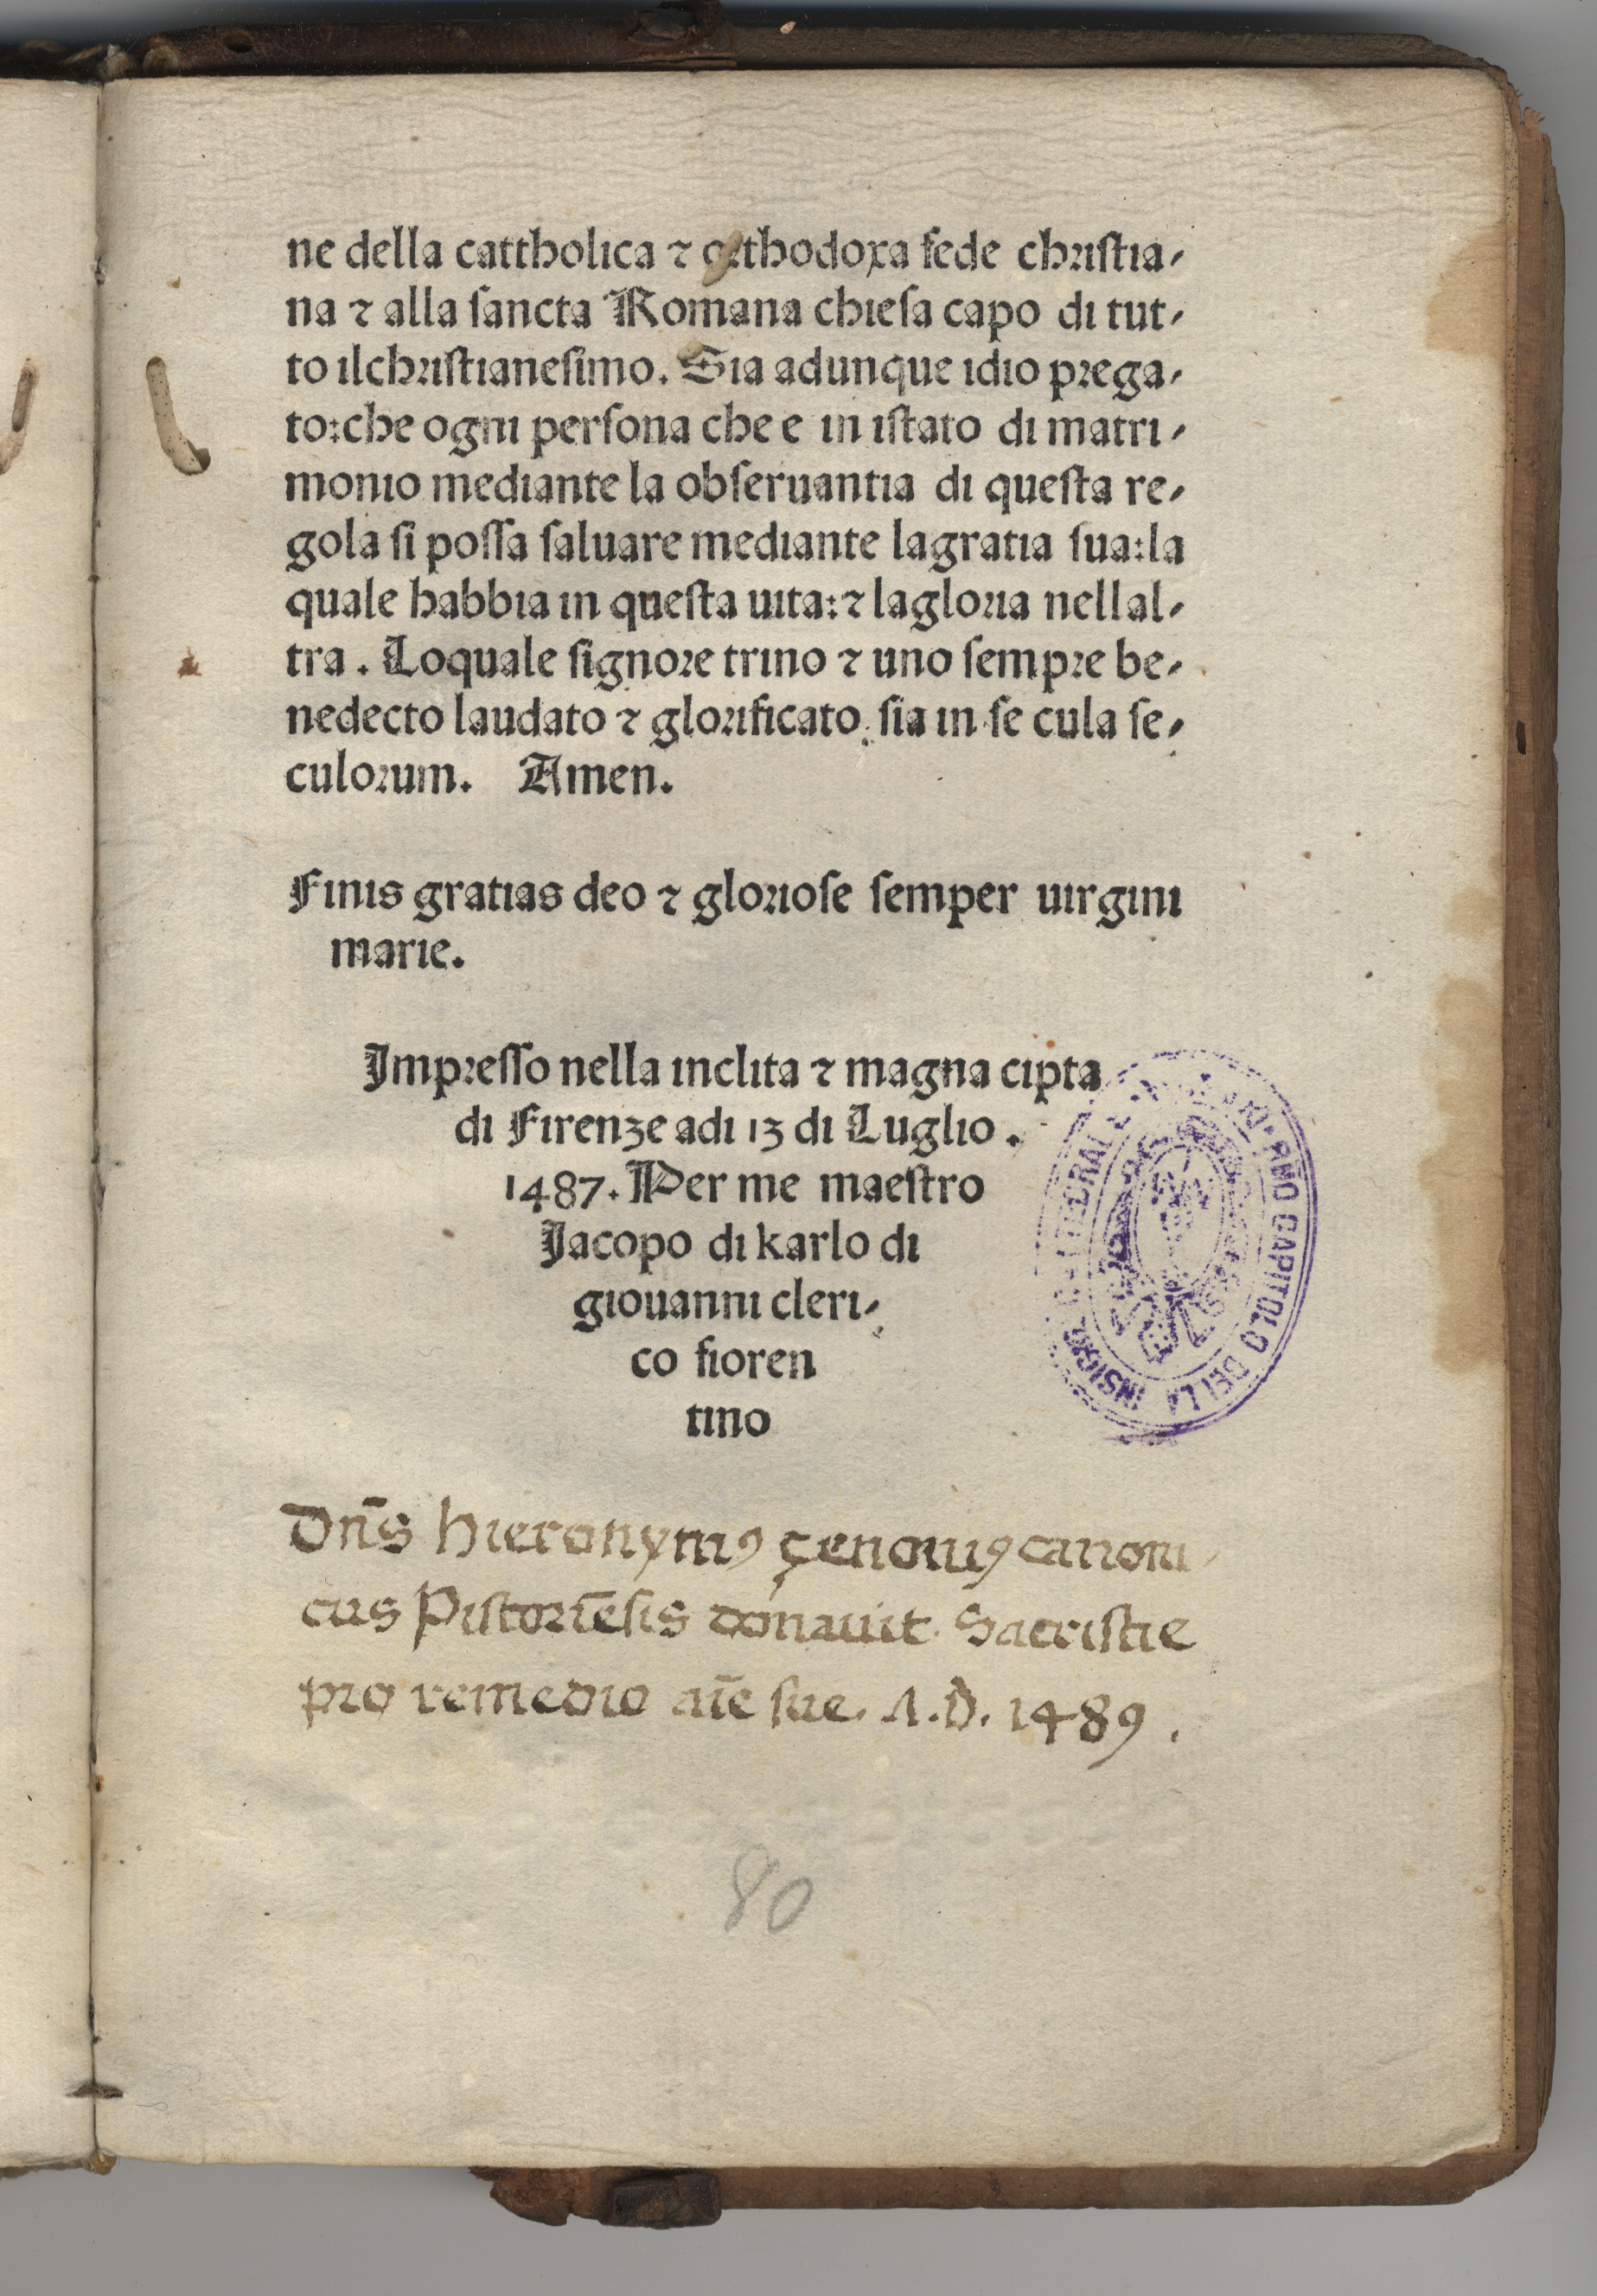 ne della cattholica ⁊ orthodoxa fede christia-
na ⁊ alla sancta Romana chiesa capo di tut-
to ilchristianesimo. Sia adunque idio prega-
to:che ogni persona che e in istato di matri-
monio mediante la obseruantia di questa re-
gola si possa saluare mediante lagratia sua:la
quale habbia in questa uita:⁊ lagloria nellal-
tra. Loquale signore trino ⁊ uno sempre be-
nedecto laudato ⁊ glorificato sia in se cula se-
culorum. Amen.
Finis gratias deo ⁊ gloriose semper uirgini
marie.
Impresso nella inclita ⁊ magna cipta
di Firenze adi 13 di Luglio.
1487. Per me maestro
Jacopo di karlo di
giouanni cleri-
co fioren
tino
INSIGNE CAPITOLO DELLA
Dn̄s hieronymꝰ çenonꝰ canoni
cus Pistoriēsis donauit Sacristie
pro remedio aīe sue. A.D. 1489.
80